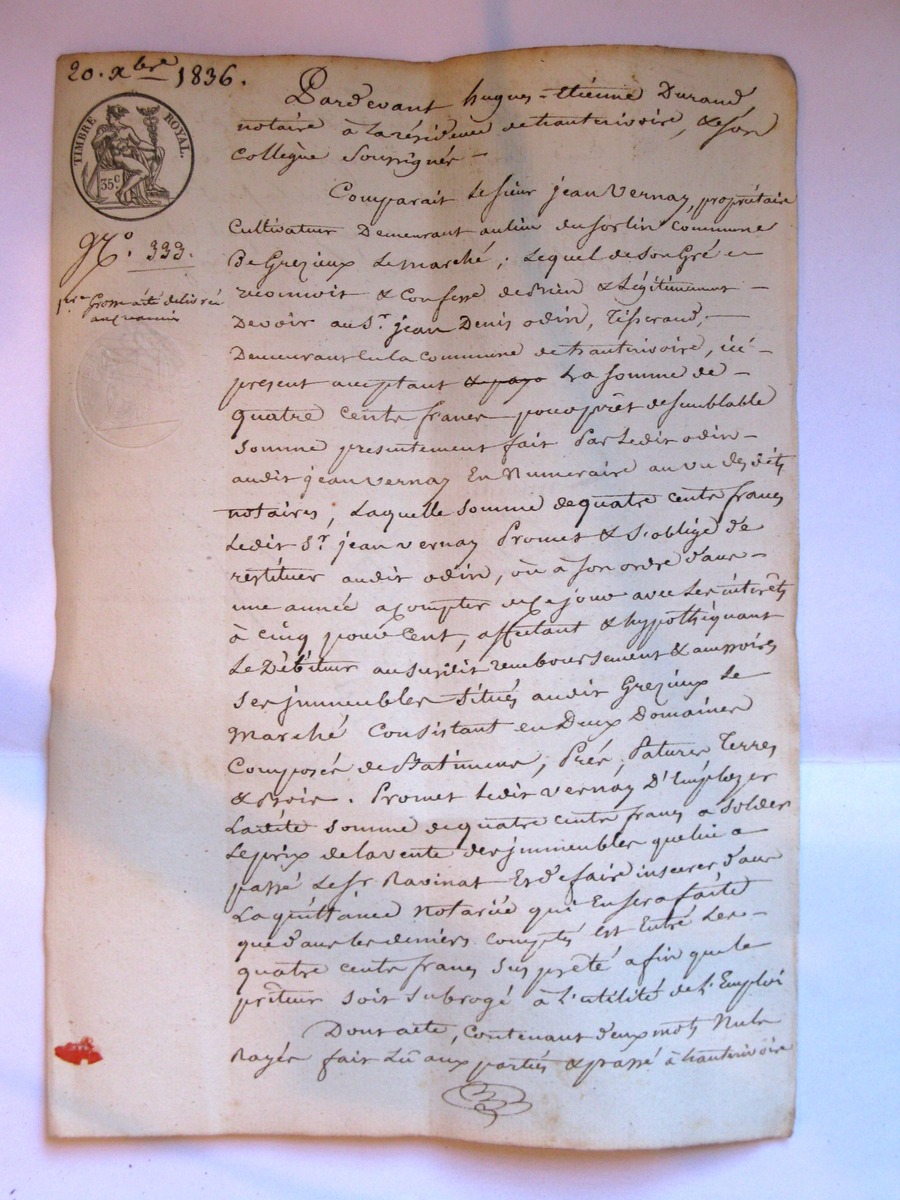 20. xbre 1836.
TIMBRE ROYAL.
35c.
No. 333.
1ere Grosse a été delivrée
Pardevant hugues-étienne Durand,
notaire à la résidence de hauterivoire, & son
Collègue Soussignés —
Comparait le sieur jean Vernay, propriétaire
Cultivateur Demeurant au lieu du sorlin commune
De Grezieux Le marché; Lequel de son Gré
reconnoit & Confesse de Bien & Légitimement —
Devoir au Sr. jean Denis odin, Tisserand, —
Demeurant en la Commune de hauterivoire, ici —
present acceptant & La Somme de —
quatre cents francs pour prêt de semblable
somme presentement fait Par Ledit odin —
audit jean Vernay En Numeraire au vu des dits
notaires, Laquelle somme de quatre cents francs
Ledit Sr. jean vernay Promet & s'oblige de
restituer audit odin, ou à son ordre dans —
une année a compter de ce jour avec Les intérêts
à cinq pour cent, affectant & hypothéquant
Le Débiteur au susdit remboursement & accessoires
Ses jmmeubles Situés audit Grezieux Le
Marché Consistant en Deux Domaines
Composés de Batimens, Prés, Patures Terres
& Bois. Promet Ledit Vernay D'Employer
Ladite somme de quatre cents francs a Solder
Le prix de la vente des jmmeubles que lui a
passé Le Sr Ravinat Et de faire inserer dans
La quittance Notariée qui En sera faite
que dans les deniers comptés est Entré Les —
quatre cents francs sus prêté afin que le
prêteur soit subrogé à l'utilité de l'Emploi
Dont acte, Contenant deux mots Nuls
Rayés fait Lu aux parties & passé à hauterivoire